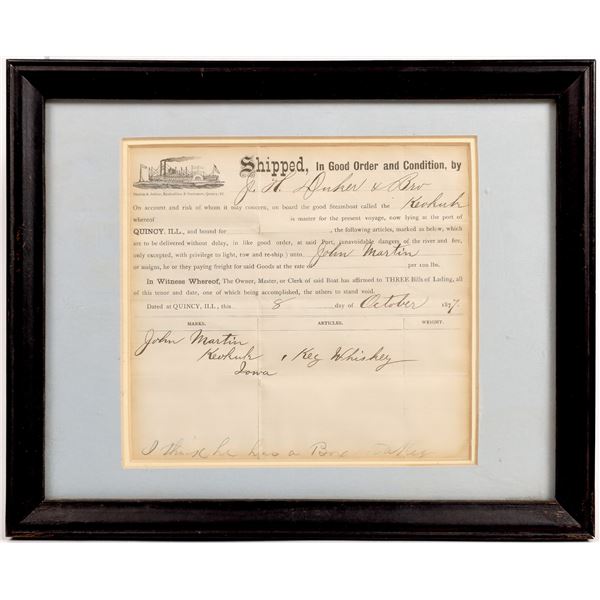 Shipped, In Good Order and Condition, by
J. H. Duker & Bro
On account and risk of whom it may concern, on board the good Steamboat called the Keokuk
whereof is master for the present voyage, now lying at the port of
QUINCY, ILL., and bound for , the following articles, marked as below, which
are to be delivered without delay, in like good order, at said Port, (unavoidable dangers of the river and fire,
only excepted, with privilege to light, tow and re-ship) unto John Martin
or assigns, he or they paying freight for said Goods at the rate of per 100 lbs.
In Witness Whereof, The Owner, Master, or Clerk of said Boat has affirmed to THREE Bills of Lading, all
of this tenor and date, one of which being accomplished, the others to stand void.
Dated at QUINCY, ILL., this 8 day of October 187
MARKS. ARTICLES. WEIGHT.
John Martin
Keokuk 1 Keg Whiskey
Iowa
I think he has a Box